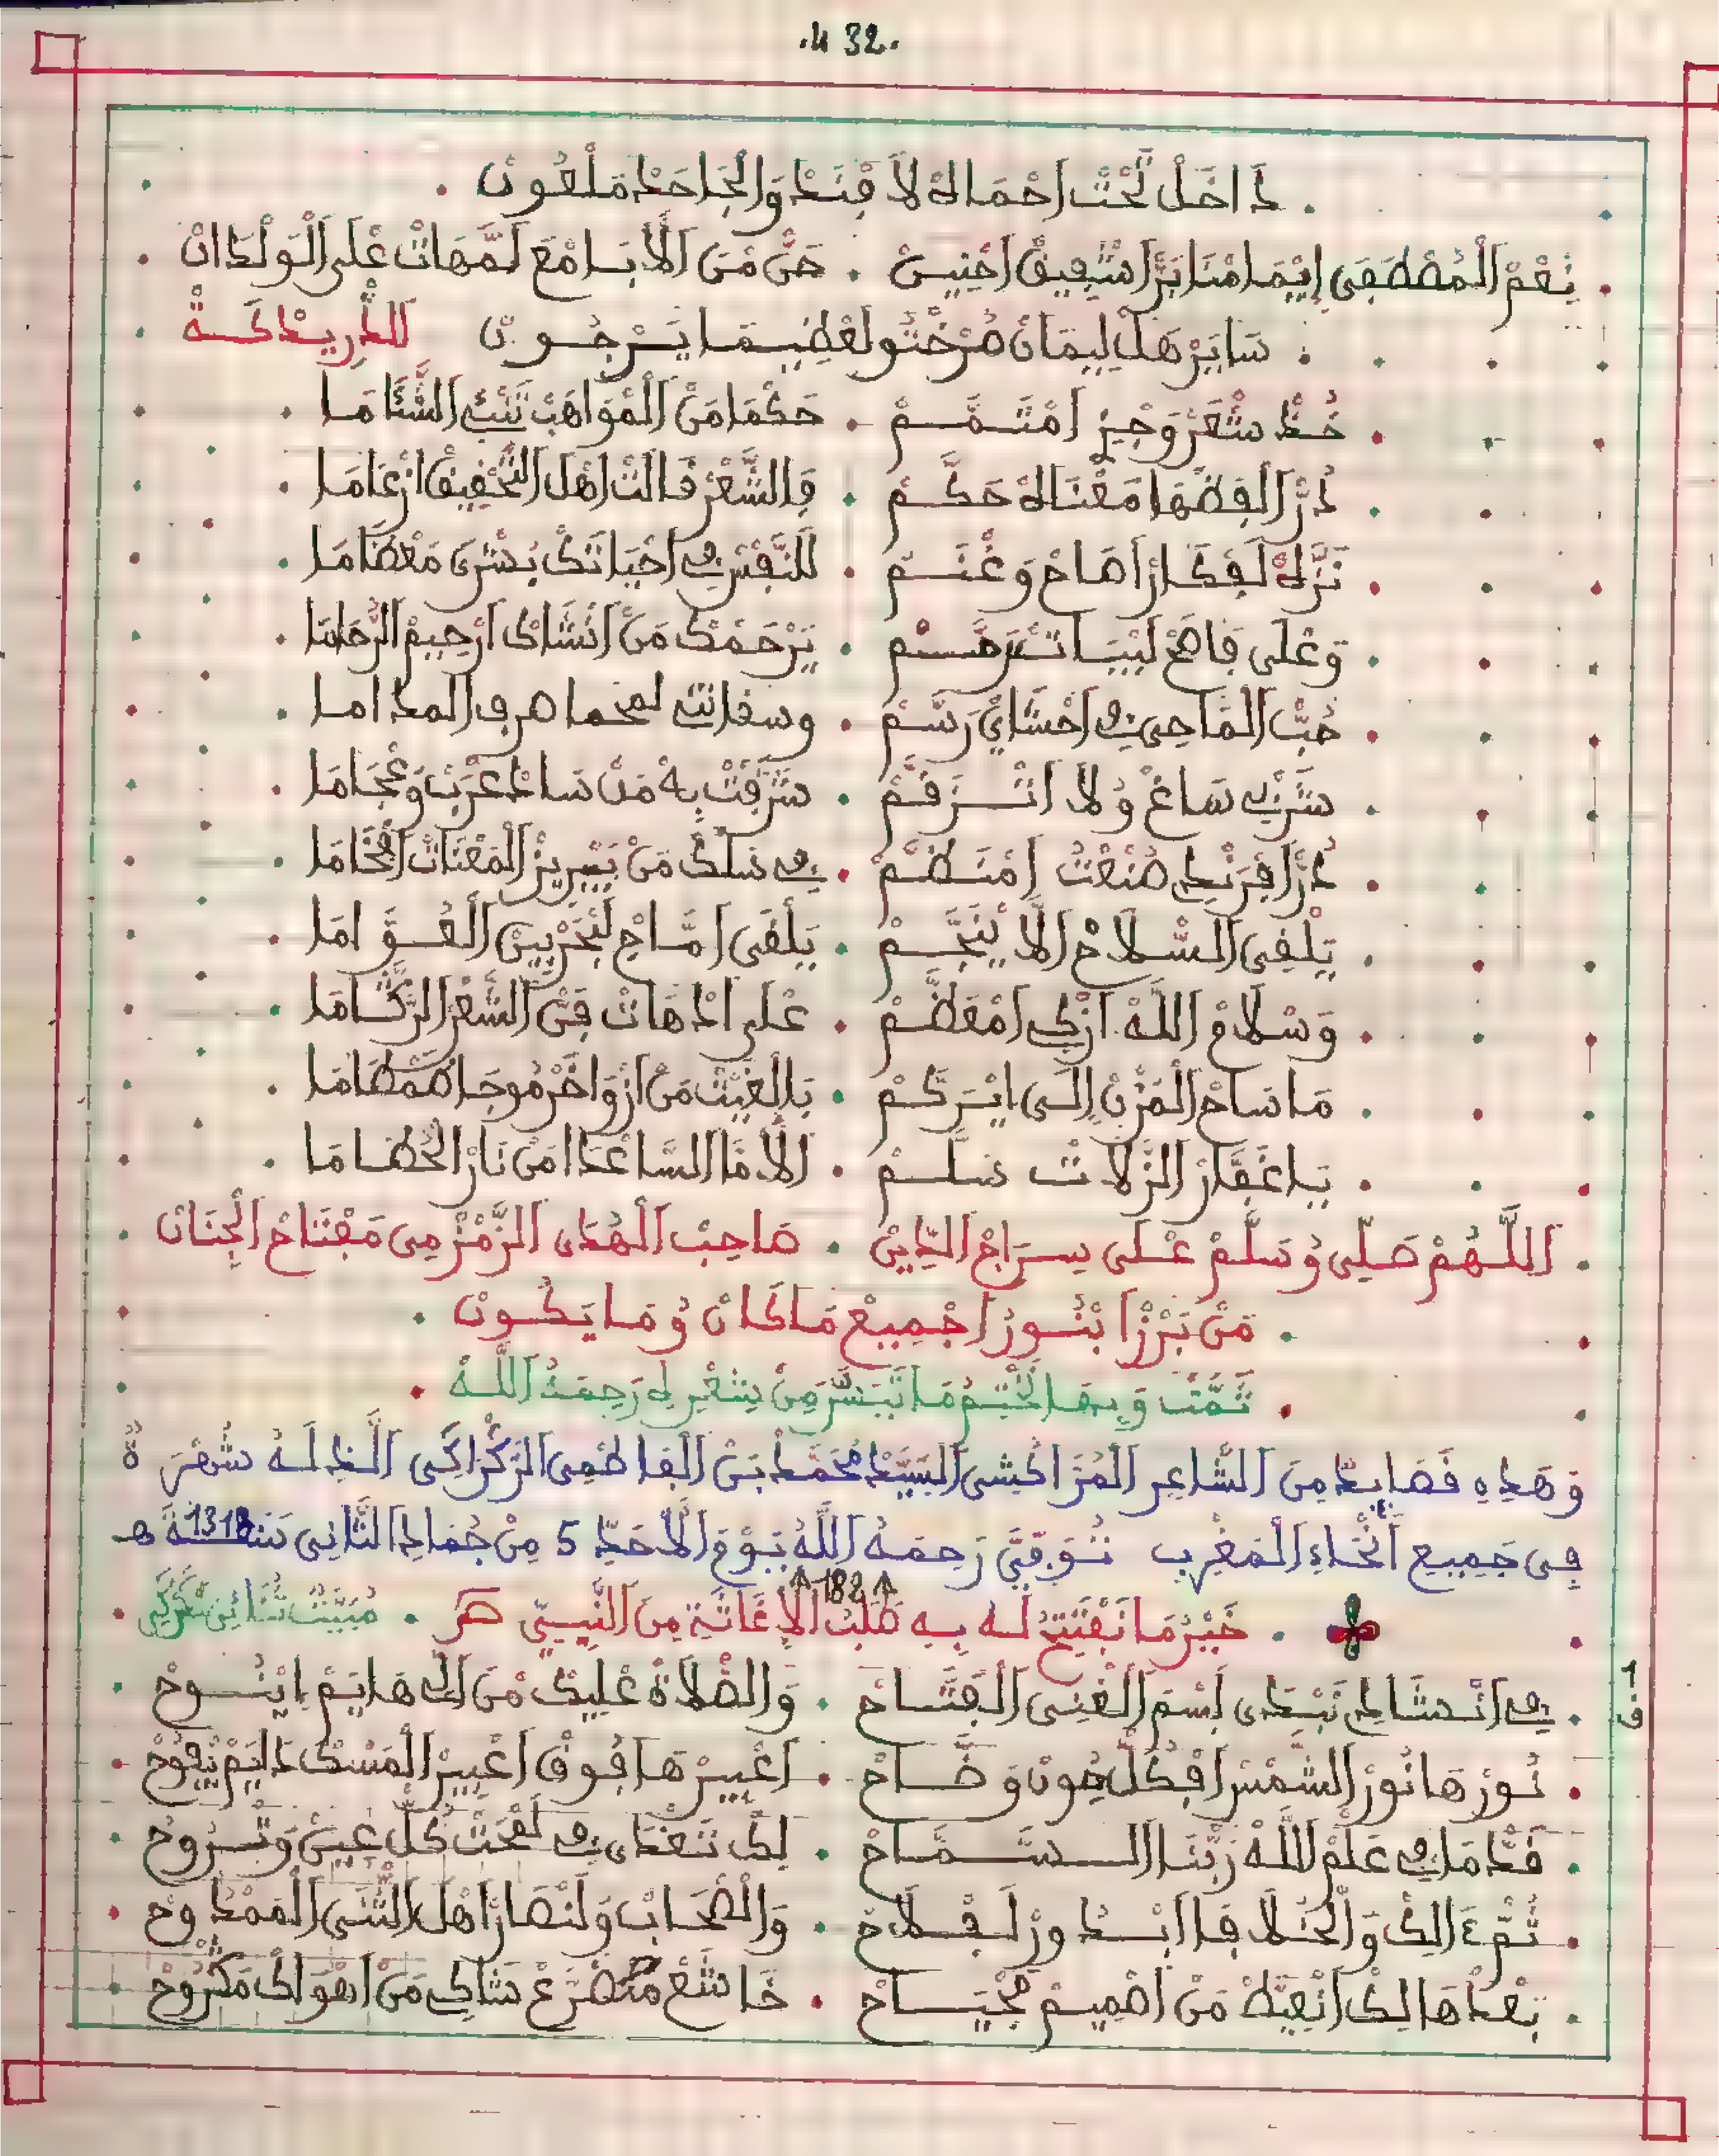 .432.
دَاخَلْ تَحْتْ احْمَاهْ لَا فْنَدْ وَالْجَاحَدْ مَلْعُونْ
نِعْمْ الْمُصْطَفَى إِيْمَامْنَا بَرْ اشْفِيقْ احْنِينْ . حَقْ مْنَ الْأَبَا مْعَ لَمَّهَاتْ عْلَى الْوَلْدَانْ
سَايَرْ هَلْ لِيمَانْ حُرْمْتُو لَعْضِيمَا يَرْجُونْ
خُدْ شْعَرْ وَجِيزْ امْتَمَّمْ . حَكْمَا مَنْ الْمْوَاهَبْ
دُرّْ الَفْضْهَا مَعْنَاهْ حَكَّمْ . وَالشَّعْرْ قَالْتْ اهْلْ التَّحْقِيقْ ازْعَامَا
نَزَّهْ لَفْكَارْ أَصَاحْ وَغْنَمْ . لَلنَّفْسْ فِي احْيَاتَكْ بُشْرَى مَعْضَامَا
وَعْلَى فَاهَجْ لَبْيَاتْ تَرْحَمْ . يَرْحَمَكْ مَنْ انْشَاكْ ارْحِيمْ الرُّحَامَا
حُبّْ الْمَاحِي فِي احْشَايْ رَسَمْ . وسقانى
شَرْبِي سَاغْ وُلَا انْزَقَّمْ . شَرْفَتْ بِهْ مَنْ سَادْ عَرْبْ وَعْجَامَا
دُرّْ افْرَنْدِي صُنْعْتُ امْنَظَّمْ . فِي سَلْكْ مَنْ يَبْرِيزْ الْمَعْنَاتْ افْخَامَا
يَلْقَى السْلَاحْ الَا يَنْجَمْ . يَلْقَى امَّاجْ لَبْحَرْ بِينْ الْعُوَّامَا
وَسْلَامْ اللَّهْ ازْكِي امْعَظَّمْ . عْلَى ادْهَاتْ فَنّْ الشَّعْرْ الزَّكَّامَا
مَا سَاحْ الْمَزْنْ إِلَى ايْرَكَّمْ . بَالْغَيْثْ مَنْ ازْوَاخَرْ مُوجَا
يَا غَفَّارْ الزَّلَاتْ سَلَّمْ . الَامَّا السَّاعْدَا مَنْ نَارْ الْحُطَامَا
اللَّهُمْ صَلِّي وُسَلَّمْ عْلَى سِرَاجْ الدِّينْ . صَاحِبْ الْهُدَى الزَّمْزْمِي مَفْتَاحْ الْجِنَانْ
مَنْ بَرْزْ ابْنُورُ اجْمِيعْ مَا كَانْ وُمَا يَكُونْ
تَمَّتْ وَبِهَا اخْتِتِمُ مَا تَيَسَّرَ مِنْ شِعْرِهِ رَحِمَهُ اللَّهْ
وَهَذِهِ قَصَايِدٌ مِنَ الشَّاعِرِ الْمُرَّاكُشِي السَّيِّدْ مُحَمَّدْ بَنْ الْفَاطَمِي الرَّكْرَاكِي الَّذِي لَهُ شُهْرَةٌ
فِي جَمِيعِ أَنْحَاءِ الْمَغْرِبِ تُوُفِّيَ رَحِمَهُ اللَّهُ يَوْمَ الْأَحَدْ 5 مِنْ جُمَادِ الثَّانِي سَنَةَ هـ
182
خَيْرُ مَا نَفْتَتِحُ لَهُ بِهِ طَلَبُ الْإِغَاثَةِ مِنَ النَّبِيِّ . مُبَيَّتْ ثُنَائِي
ق 1
فِي انْشَادِي نَبْدَى بَسْمَ الْغَنِي الْفَتَّاحْ . وَالصَّلَاةُ عْلِيكْ مْنَ الْهَايَمْ ايْنُوحْ
نُورْهَا نُورْ الشَّمْسْ افْكُلّْ كُونْ وَضَّاحْ . اعْبِيرْهَا فُوقْ اعْبِيرْ الْمَسْكْ دَايَمْ يْفُوحْ
قَدّْ مَا فِي عَلْمْ اللَّهْ رَبَّنَا السَّمَّاحْ . لِكْ تَغْدَى فِي لَمْحَتْ كُلّْ عِينْ وَتْرُوحْ
تَمّْ ءَالِكْ وَالْخُلَافَا ابْدُورْ لَفْلَاحْ . وَالصْحَابْ وَلَنْصَارْ اهْلْ الثْنَى الْمَمْدُوحْ
بَعْدْهَا لِكْ انْعِيَّطْ مَنْ اصْمِيمْ مَجْيَاحْ . خَاشَعْ مَتْضَرَّعْ شَاكِي مَنْ اهْوَاكْ مَجْرُوحْ